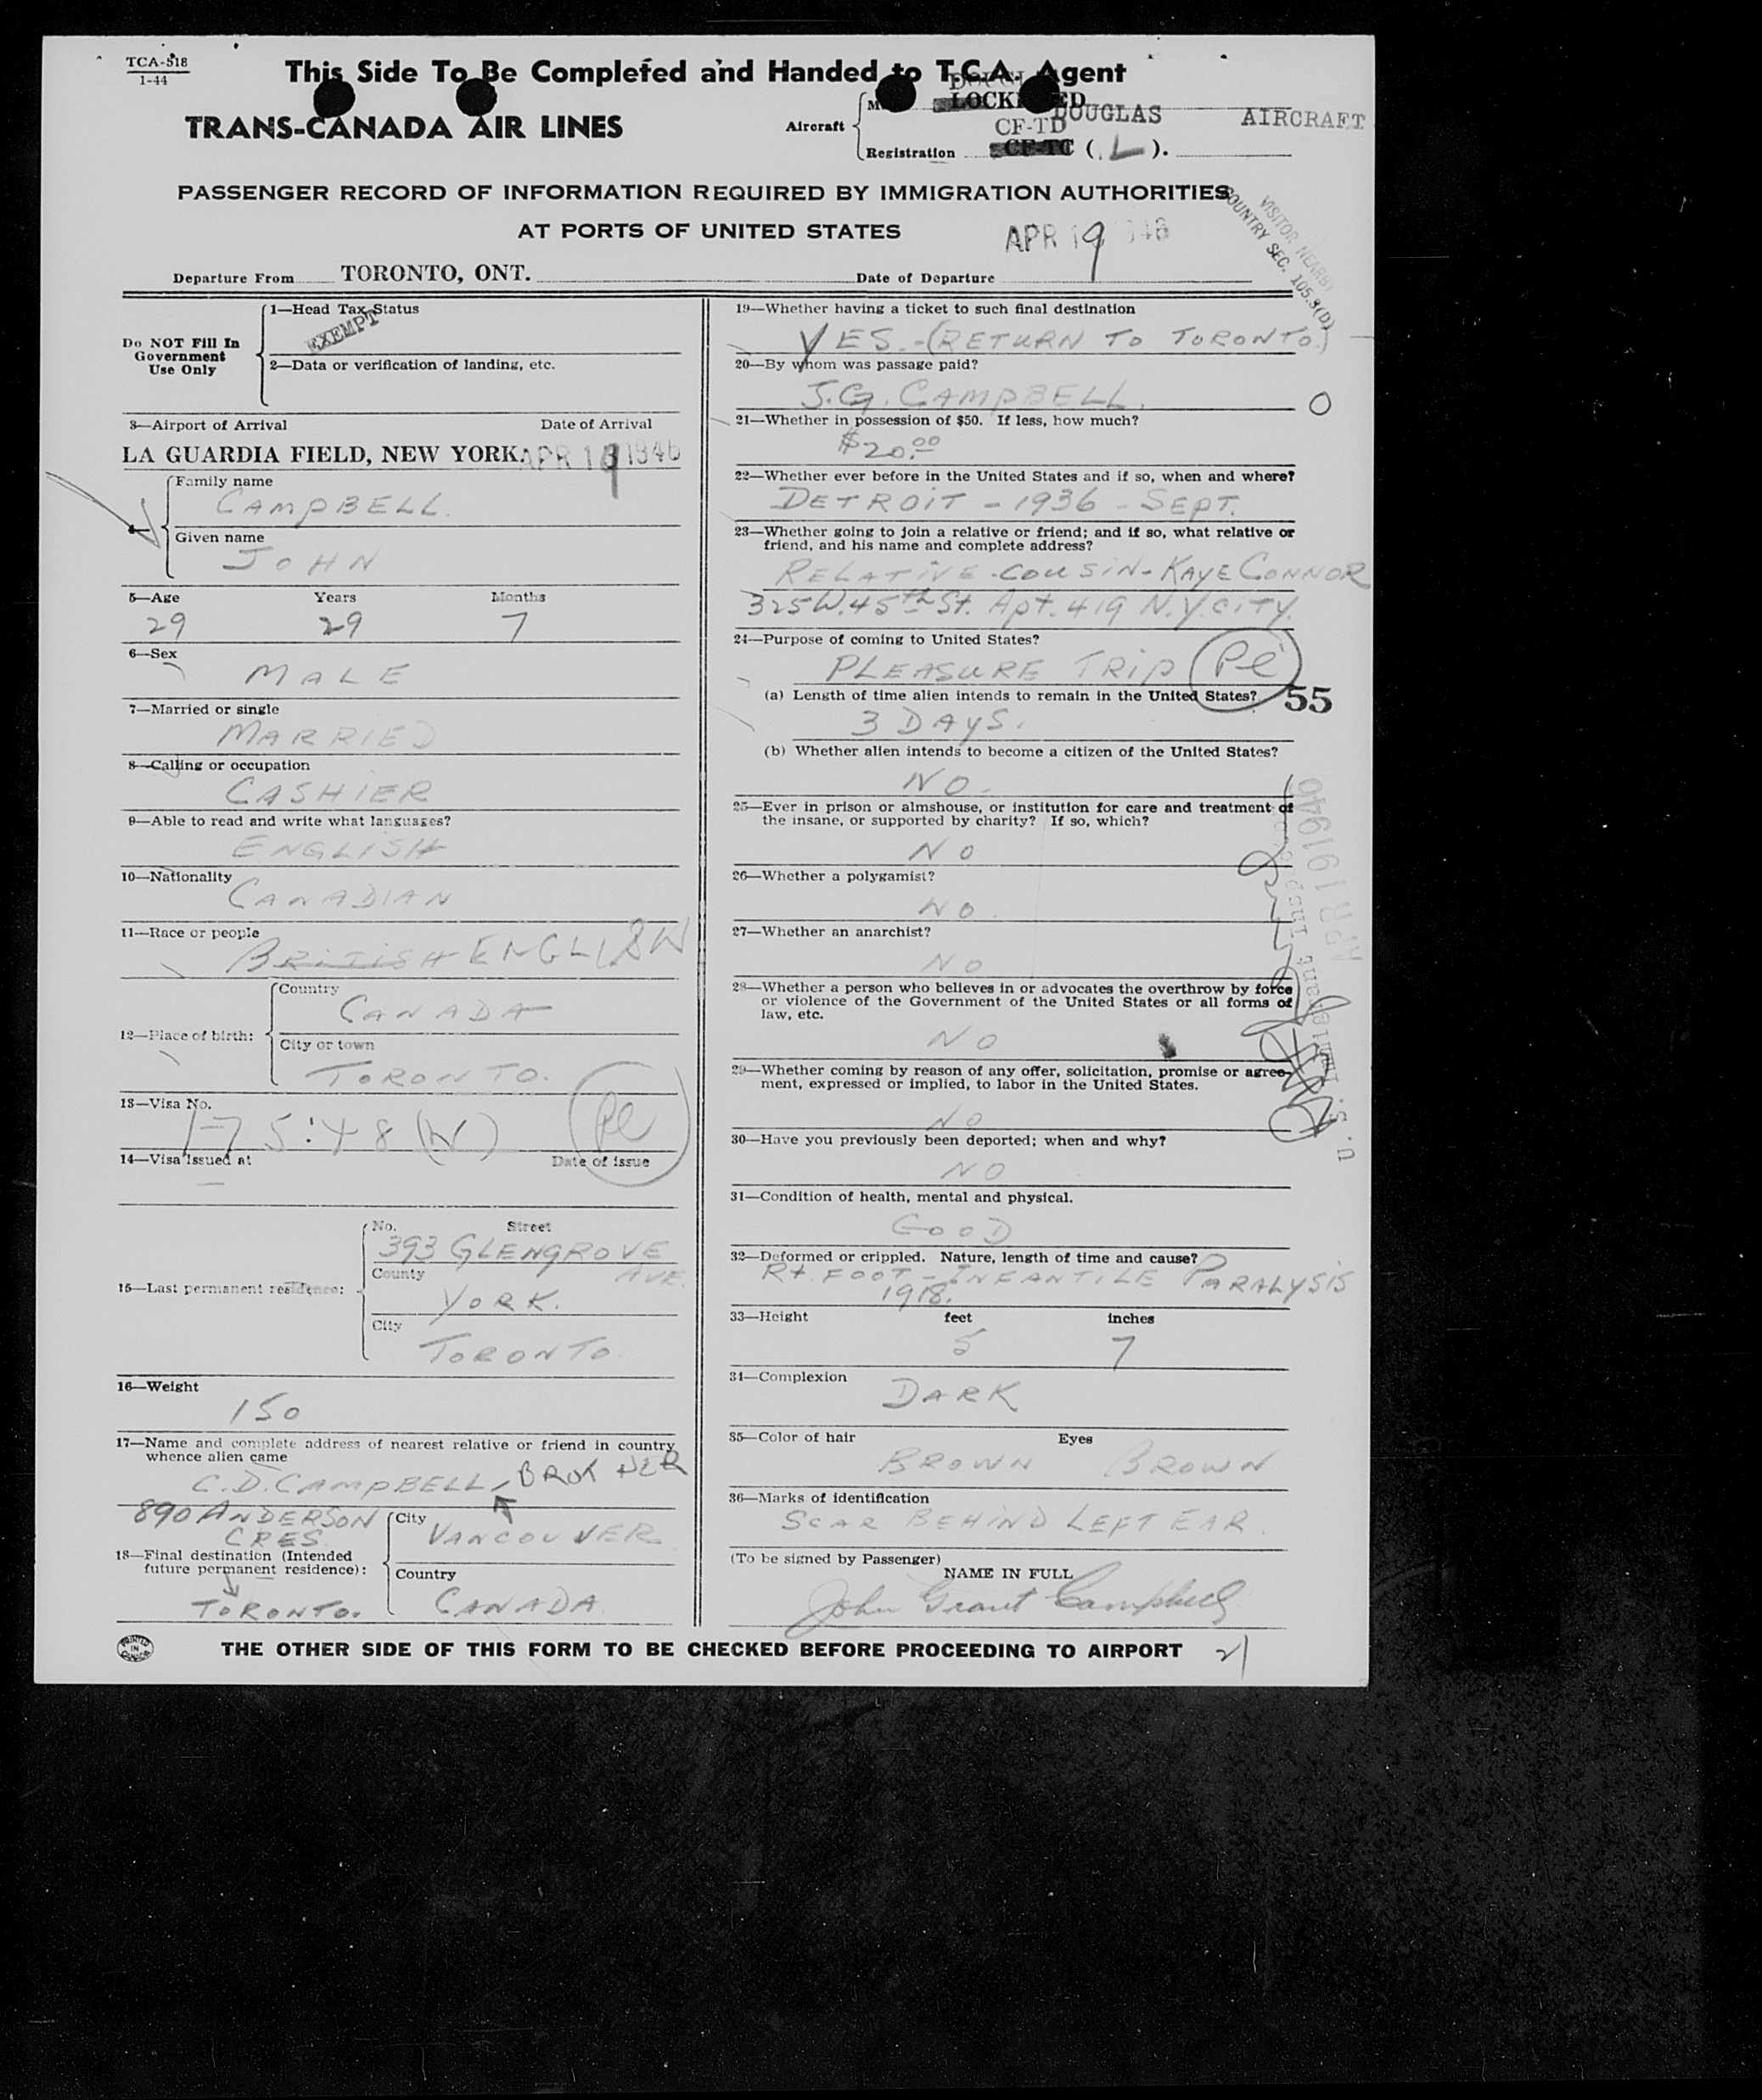 TCA-518
1-44
This Side To Be Completed and Handed to T.C.A. Agent
TRANS-CANADA AIR LINES
Aircraft
LOCKHEED
DOUGLAS AIRCRAFT
CF-TD
Registration CF-TC (L).
PASSENGER RECORD OF INFORMATION REQUIRED BY IMMIGRATION AUTHORITIES
AT PORTS OF UNITED STATES
APR 19 1946
VISITOR NEARBY
COUNTRY SEC. 105.3(D)
Departure From TORONTO, ONT. Date of Departure
Do NOT Fill In
Government
Use Only
1—Head Tax Status
EXEMPT
2—Data or verification of landing, etc.
3—Airport of Arrival Date of Arrival
LA GUARDIA FIELD, NEW YORK. APR 19 1946
4—
Family name
CAMPBELL.
Given name
JOHN
5—Age Years Months
29 29 7
6—Sex
MALE
7—Married or single
MARRIED
8—Calling or occupation
CASHIER
9—Able to read and write what languages?
ENGLISH
10—Nationality
CANADIAN
11—Race or people
BRITISH ENGLISH
12—Place of birth:
Country
CANADA
City or town
TORONTO.
13—Visa No.
17 5:48 (W) Pl
14—Visa Issued at Date of issue
—
15—Last permanent residence:
No. Street
393 GLENGROVE
AVE.
County
YORK.
City
TORONTO
16—Weight
150
17—Name and complete address of nearest relative or friend in country
whence alien came
C.D. CAMPBELL, BROTHER
890 ANDERSON
CRES.
City
VANCOUVER
18—Final destination (Intended
future permanent residence):
TORONTO.
Country
CANADA
19—Whether having a ticket to such final destination
YES.-(RETURN TO TORONTO.)
20—By whom was passage paid?
J.G. CAMPBELL.
O
21—Whether in possession of $50. If less, how much?
$20.00
22—Whether ever before in the United States and if so, when and where?
DETROIT - 1936 - SEPT.
23—Whether going to join a relative or friend; and if so, what relative or
friend, and his name and complete address?
RELATIVE - COUSIN - KAYE CONNOR
325 W. 45th St. Apt. 419 N.Y. CITY.
24—Purpose of coming to United States?
PLEASURE TRIP Pl
(a) Length of time alien intends to remain in the United States? 55
3 DAYS.
(b) Whether alien intends to become a citizen of the United States?
NO.
25—Ever in prison or almshouse, or institution for care and treatment of
the insane, or supported by charity? If so, which?
NO
26—Whether a polygamist?
NO.
27—Whether an anarchist?
NO
28—Whether a person who believes in or advocates the overthrow by force
or violence of the Government of the United States or all forms of
law, etc.
NO
29—Whether coming by reason of any offer, solicitation, promise or agree-
ment, expressed or implied, to labor in the United States.
NO
30—Have you previously been deported; when and why?
NO
31—Condition of health, mental and physical.
GOOD
32—Deformed or crippled. Nature, length of time and cause?
Rt. FOOT - INFANTILE PARALYSIS
1918.
33—Height feet inches
5 7
34—Complexion
DARK
35—Color of hair Eyes
BROWN BROWN
36—Marks of identification
SCAR BEHIND LEFT EAR.
(To be signed by Passenger)
NAME IN FULL
John Grant Campbell
PRINTED IN CANADA
THE OTHER SIDE OF THIS FORM TO BE CHECKED BEFORE PROCEEDING TO AIRPORT
21